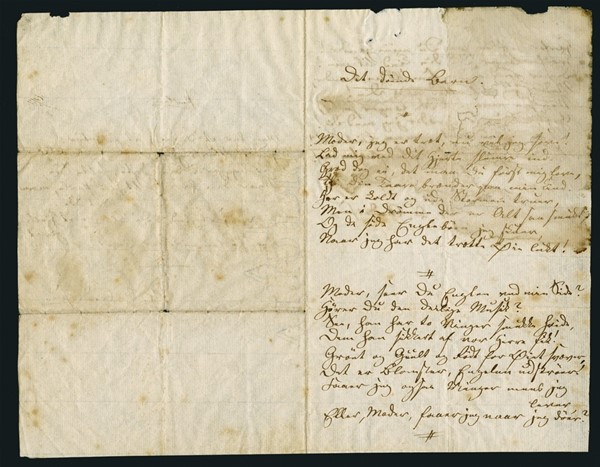 Det døende Barn.
Moder, jeg er træt, nu vil jeg sove!
Lad mig ved dit Hjerte slumre ind
Græd dog ei, det maa Du først mig love,
Thi Din Taare brænder paa min Kind
Her er koldt og ude Stormen truer,
Men i Drømme der er Alt saa smukt
Og de søde Englebørn jeg skuer
Naar jeg har det trætte Øie lukt!
Moder, seer Du Englen ved min Side?
Hører Du den deilige Musik?
See, han har to Vinger smukke hvide,
Dem han sikkert af vor Herre fik!
Grønt og Guult og Rødt for Øiet svæver,
Det er Blomster, Engelen udstrøer!
Faaer jeg ogsaa Vinger mens jeg
lever
Eller, Moder, faaer jeg naar jeg døer?